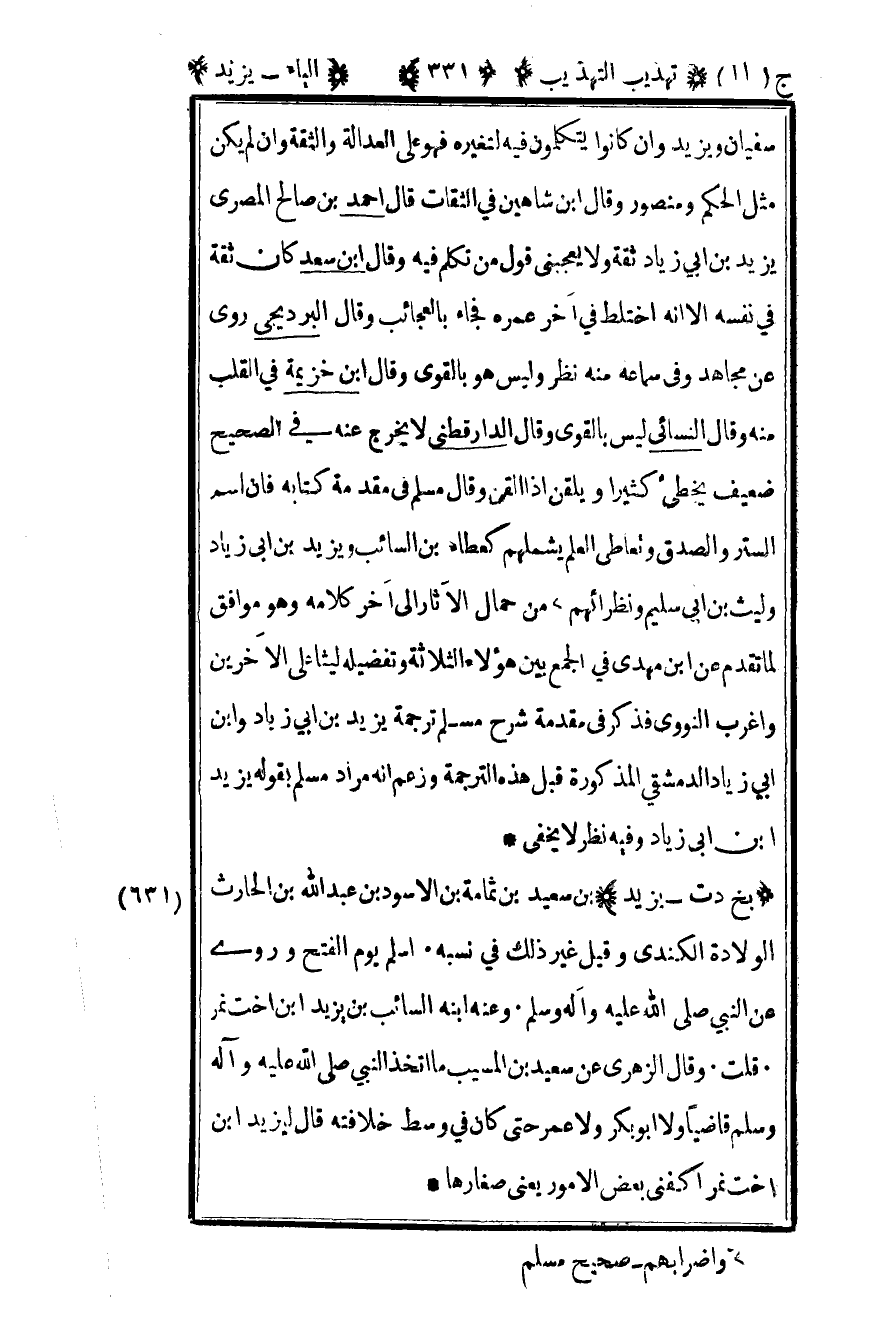 ج (١١) ﴿ تهذيب التهذيب ﴾ ﴿ ٣٣١ ﴾ ﴿ الياء ـ يزيد ﴾
سفيان ويزيد وان كانوا يتكلمون فيه لتغيره فهو على العدالة والثقة وان لم يكن
مثل الحكم ومنصور وقال ابن شاهين في الثقات قال احمد بن صالح المصرى
يزيد بن ابي زياد ثقة ولا يعجبنى قول من تكلم فيه وقال ابن سعد كان ثقة
في نفسه الا انه اختلط في آخر عمره فجاء بالعجائب وقال البرديجي روى
عن مجاهد وفى سماعه منه نظر وليس هو بالقوى وقال ابن خزيمة في القلب
منه وقال النسائى ليس بالقوى وقال الدارقطنى لا يخرج عنه في الصحيح
ضعيف يخطئ كثيرا ويلقن اذا القن وقال مسلم فى مقدمة كتابه فان اسم
الستر والصدق وتعاطى العلم يشملهم كعطاء بن السائب ويزيد بن ابى زياد
وليث بن ابي سليم ونظرائهم ٧ من حمال الآثار الى آخر كلامه وهو موافق
لما تقدم عن ابن مهدى في الجمع بين هؤلاء الثلاثة وتفضيله ليثا على الآخرين
واغرب النووى فذكر فى مقدمة شرح مسلم ترجمة يزيد بن ابي زياد وابن
ابي زياد الدمشقي المذكورة قبل هذه الترجمة وزعم انه مراد مسلم بقوله يزيد
ابن ابى زياد وفيه نظر لا يخفى *
﴿ بخ د ت ـ يزيد ﴾ بن سعيد بن ثمامة بن الاسود بن عبد الله بن الحارث (٦٣١)
الولادة الكندى وقيل غير ذلك في نسبه ٠ اسلم يوم الفتح وروى
عن النبي صلى الله عليه وآله وسلم ٠ وعنه ابنه السائب بن يزيد ابن اخت نمر
٠ قلت ٠ وقال الزهرى عن سعيد بن المسيب ما اتخذ النبي صلى الله عليه وآله
وسلم قاضيا ولا ابو بكر ولا عمر حتى كان في وسط خلافته قال ليزيد ابن
اخت نمر اكفنى بعض الامور يعنى صغارها *
٧ واضرابهم ـ صحيح مسلم